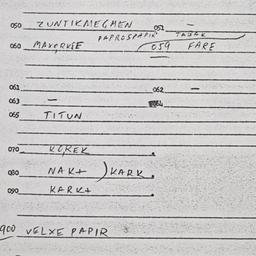 050 ZUNTIKMEGMEN 051 —
PAPROSPAPIR TABAK
060 059 FARE
061 062 —
063 —
065 TITUN
070 KÜREK
080 NAKT ) KARK
090 KARKT
900 VELXE PAPIR